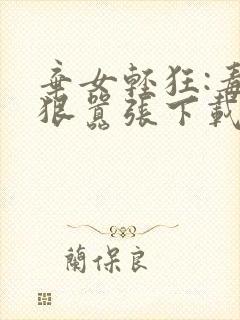 棄女輕狂:毒
狠囂張下載
蘭保良